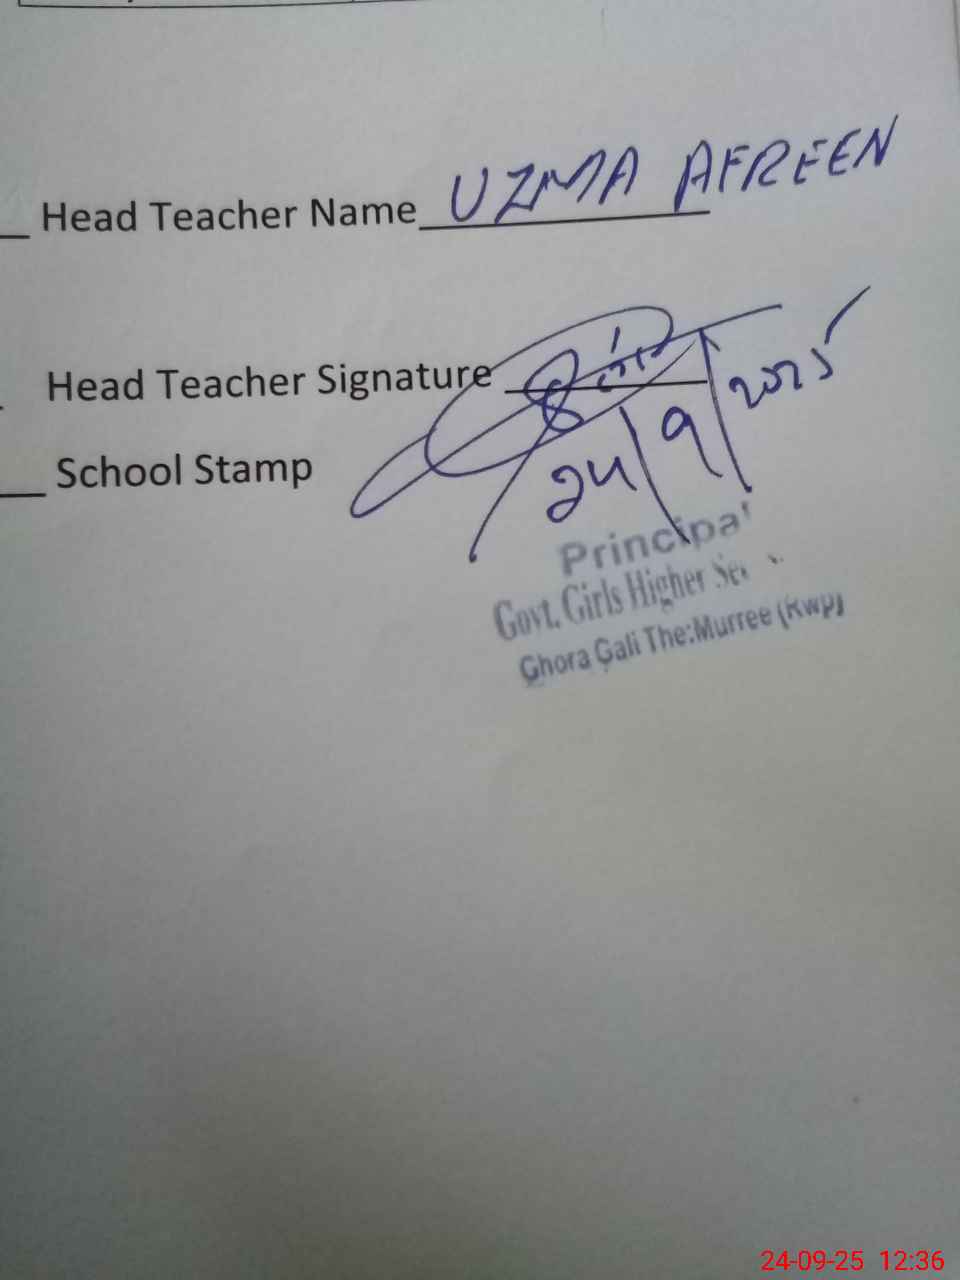 Head Teacher Name UZMA AFREEN
Head Teacher Signature
24/9/2025
School Stamp
Principal
Govt. Girls Higher Sec
Ghora Gali The:Murree (Rwp)
24-09-25 12:36